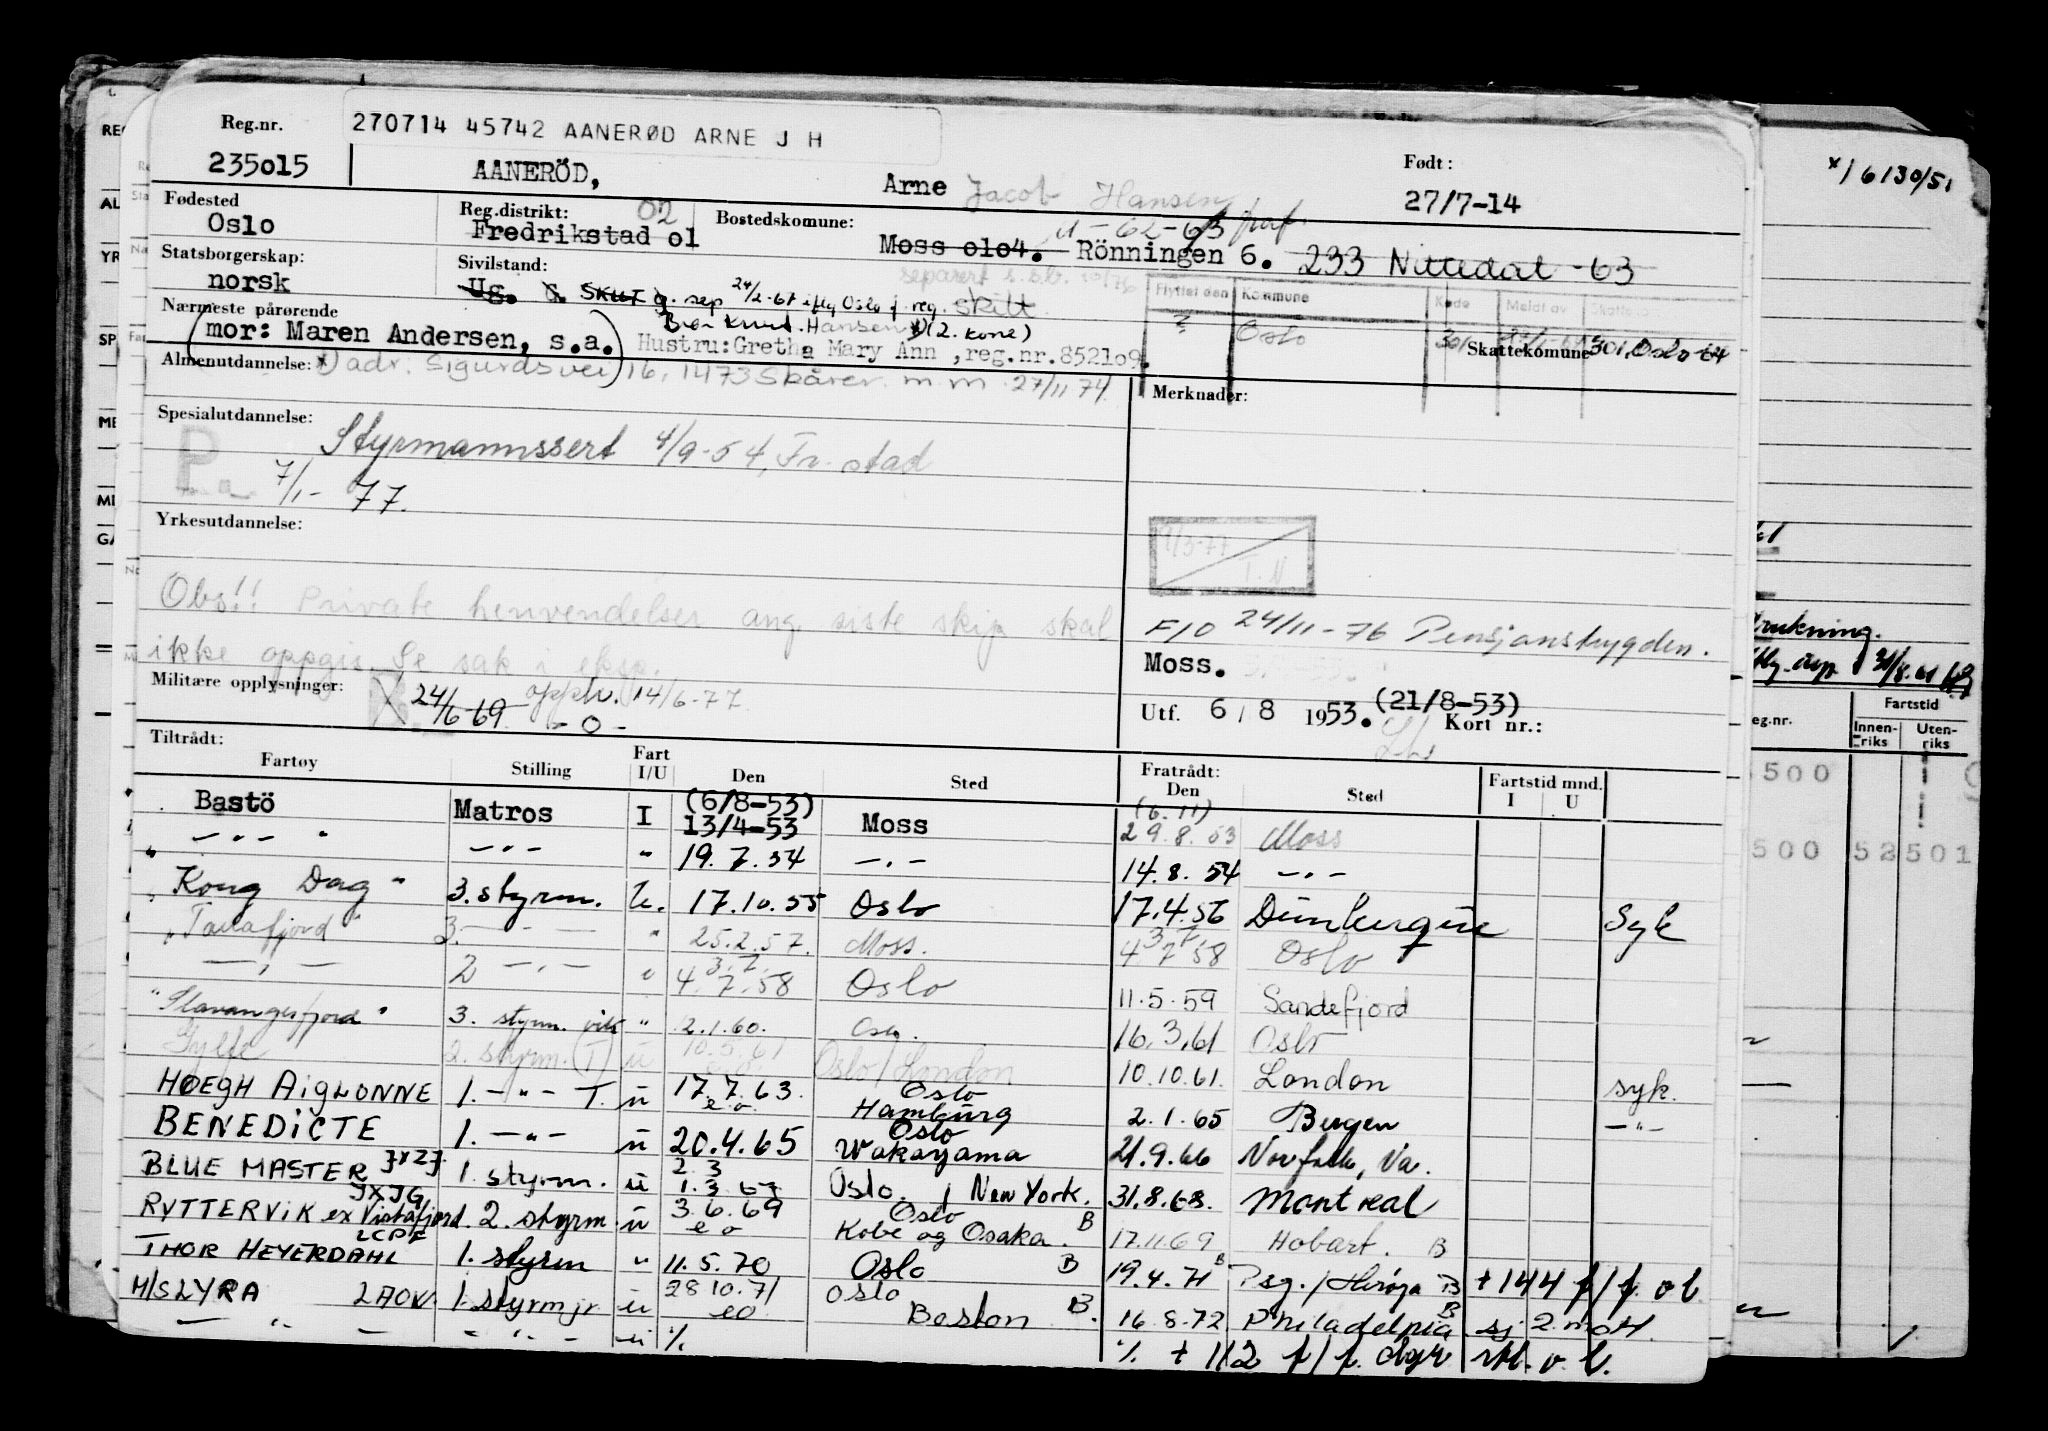 Reg.nr. 270714 45742 AANERØD ARNE J H
235o15 AANERÖD, Arne Jacob Hansen Født: 27/7-14
Fødested Oslo Reg.distrikt: 02 Fredrikstad o1 Bostedskomune: Moss o1o4. Rönningen 6. 233 Nittedal -63
Statsborgerskap: norsk Sivilstand: Ug. G. Skilt g. sep 24/2-67 iflg Oslo f. reg. skilt
separert s.o.b. 10/76
Flyttet den Kommune Kode Meldt av
Oslo 301
Nærmeste pårørende (mor: Maren Andersen, s.a.) Bror Knut Hansen x) (2. kone)
Hustru: Grethe Mary Ann, reg.nr.8521o9. Skattekomune 301, Oslo-64
Almenutdannelse: x) adr: Sigurdsvei 16, 1473 Skårer. m.m. 27/11-74
Merknader:
Spesialutdannelse: Styrmannssert 4/9-54, Fr.stad
P. 7/1-77.
Yrkesutdannelse:
9/3-77 T.N
Obs!! Private henvendelser ang. siste skip skal
ikke oppgis. Se sak i eksp.
F/O 24/11-76 Pensjonstrygden.
Moss.
Militære opplysninger: 24/6-69 opph. 14/6-77
-o-
Utf. 6/8 1953. (21/8-53) Kort nr.:
Tiltrådt: Fratrådt:
Fartøy Stilling Fart I/U Den Sted Den Sted Fartstid mnd. I U
Bastö Matros I (6/8-53) 13/4-53 Moss (6.11) 29.8.53 Moss
— " — — " — " 19.7.54 — " — 14.8.54 — " —
"Kong Dag" 3. styrm. U. 17.10.55 Oslo 17.4.56 Dunkerque Syk
"Tanafjord" 3. — " — " 25.2.57. Moss. 3.7. 4.7.58 Oslo
— " — 2 — " — " 3.7. 4.7.58 Oslo 11.5.59 Sandefjord
"Stavangerfjord" 3. styrm. vik " 2.1.60. Oslo. 16.3.61 Oslo
Gylfe 2. styrm. (T) u 10.5.61 Oslo/London 10.10.61. London syk.
HØEGH AIGLONNE 1. — " — T. u 17.7.63. eo Oslo Hamburg 2.1.65 Bergen — " —
BENEDICTE 1. — " — u 20.4.65 Oslo Wakayama 21.9.66 Norfolk, Va.
BLUE MASTER 1. styrm. u 2.3 1.3.67 Oslo / New York. 31.8.68. Montreal
RYTTERVIK ex Vistafjord JXJG 2. styrm u 3.6.69 eo Oslo Kobe og Osaka. B 17.11.69 Hobart. B
THOR HEYERDAHL LCPF 1. styrm " 11.5.70 Oslo B 19.4.71 B Psg./ B + 144 f/f. o b.
M/S LYRA LAOV 1. styrm jr u 28.10.71 eo Oslo Boston B. 16.8.72 Philadelphia B sj. 2. m oH.
— " — — " — u % % + 112 f/f. dgr o. b.
x) 6130/51
31/8.61
eg.nr. Fartstid
Innen-riks Uten-riks
500
500 52 501